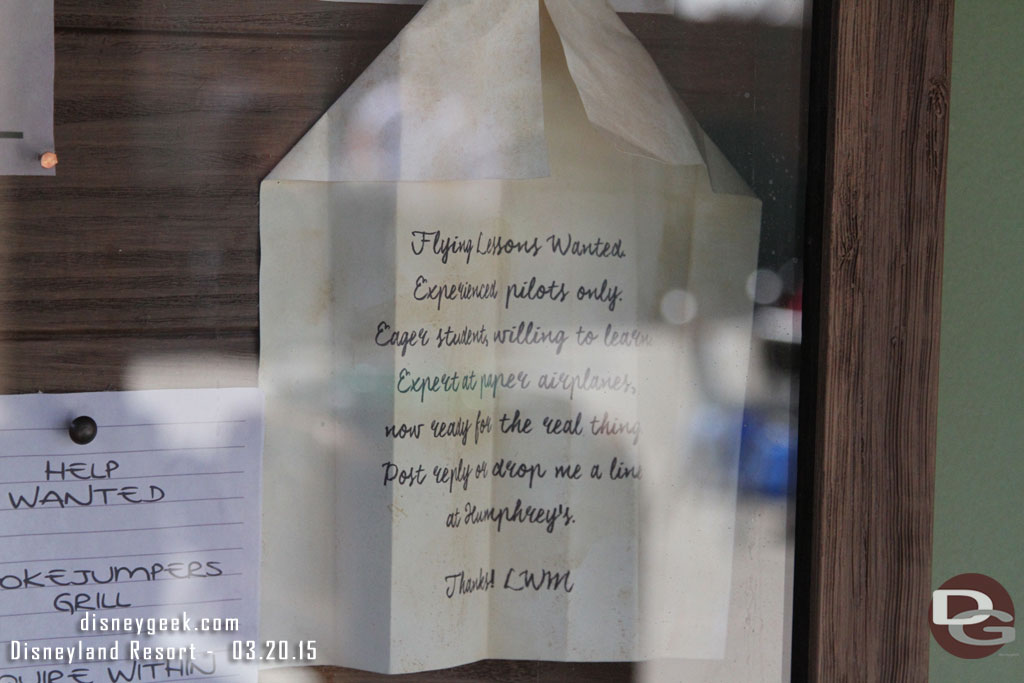 Flying Lessons Wanted.
Experienced pilots only.
Eager student, willing to learn.
Expert at paper airplanes,
now ready for the real thing
Post reply or drop me a line
at Humphrey's.
Thanks! LWM
HELP
WANTED
OKEJUMPERS
GRILL
WITHIN
disneygeek.com
Disneyland Resort - 03.20.15
DG